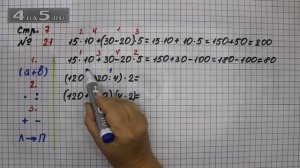 4DS.RU
Стр. 7
№ 21
2 4 1 3
15·10+(30-20)·5=15·10+10·5=150+50=200
1 3 4 2
15·10+30-20·5=150+30-100=180-100=80
1.
(а+в)
(120
:4)·2=
2.
· :
(120+
:(4·2)=
3.
+ -
Л→П